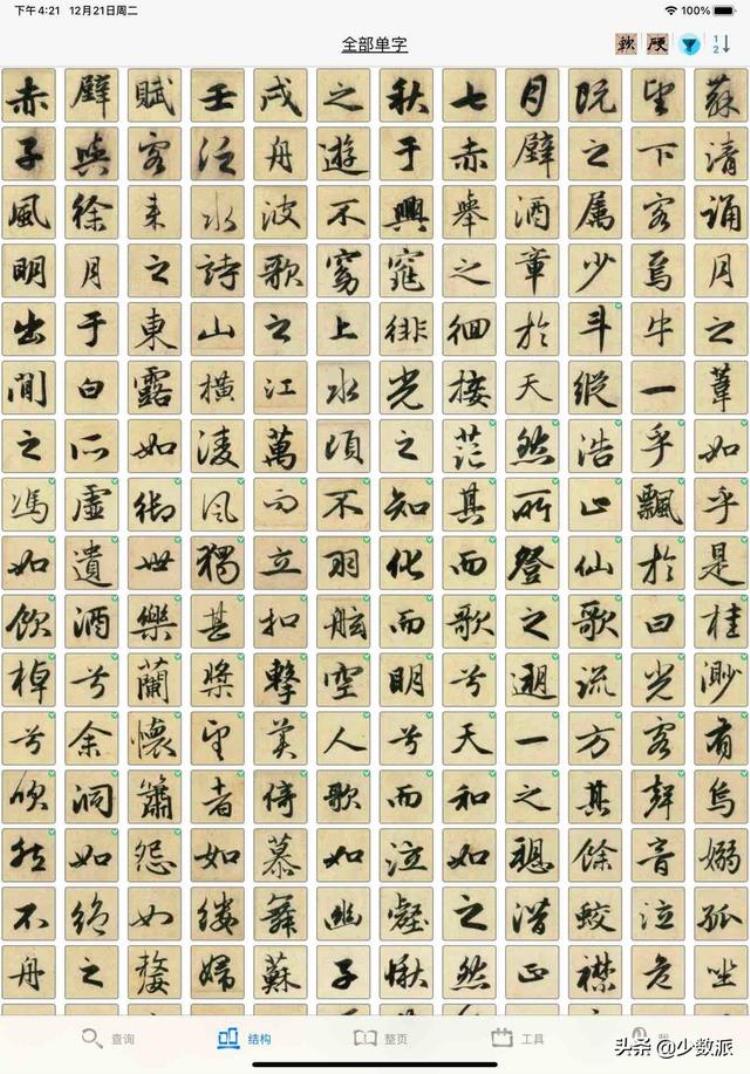 下午4:21 12月21日周二 100%
全部单字
赤壁賦壬戌之秋七月既望蘇
子與客泛舟遊于赤壁之下清
風徐来水波不興舉酒属客誦
明月之詩歌窈窕之章少焉月
出于東山之上徘徊於斗牛之
間白露橫江水光接天縱一葦
之所如凌萬頃之茫然浩乎如
馮虛御风而不知其所止飄乎
如遺世獨立羽化而登仙於是
飲酒樂甚扣舷而歌之歌曰桂
棹兮蘭槳擊空明兮遡流光渺
兮余懷望美人兮天一方客有
吹洞簫者倚歌而和之其聲烏
然如怨如慕如泣如愬餘音嫋
不絕如縷舞幽壑之潛蛟泣孤
舟之嫠婦蘇子愀然正襟危坐
查询 结构 整页 工具
头条 @少数派